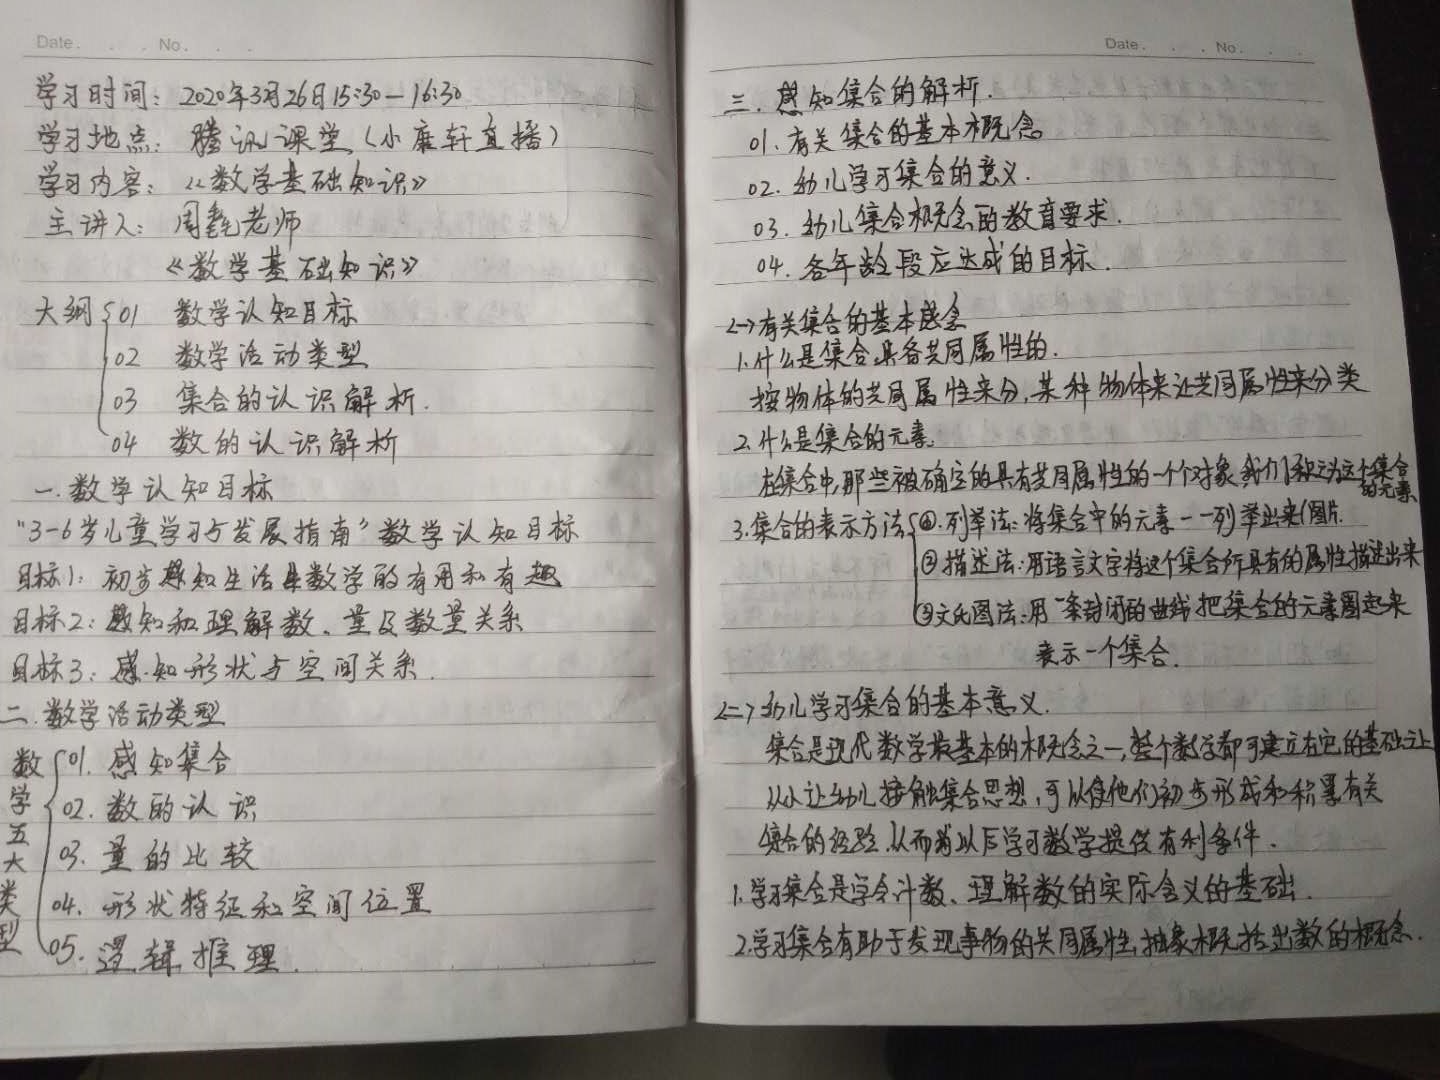 Date. . . No. . .
学习时间: 2020年3月26日15:30—16:30
学习地点: 腾讯课堂(小康轩直播)
学习内容: 《数学基础知识》
主讲人: 周老师
《数学基础知识》
大纲 01 数学认知目标
02 数学活动类型
03 集合的认识解析.
04 数的认识解析
一.数学认知目标
"3-6岁儿童学习与发展指南"数学认知目标
目标1: 初步感知生活中数学的有用和有趣
目标2: 感知和理解数、量及数量关系
目标3: 感知形状与空间关系.
二.数学活动类型
数学五大类型
01. 感知集合
02. 数的认识
03. 量的比较
04. 形状特征和空间位置
05. 逻辑推理.
Date. . . No. . .
三. 感知集合的解析.
01. 有关集合的基本概念
02. 幼儿学习集合的意义.
03. 幼儿集合概念的教育要求.
04. 各年龄段应达成的目标.
<一>有关集合的基本感念
1.什么是集合.具备共同属性的.
按物体的共同属性来分,某种物体来让共同属性来分类
2.什么是集合的元素.
在集合中,那些被确定的具有共同属性的一个个对象,我们称之为这个集合的元素
3.集合的表示方法 ①.列举法:将集合中的元素一一列举出来(图片.
②描述法:用语言文字将这个集合所具有的属性描述出来
③文氏图法:用一条封闭的曲线把集合的元素圈起来
表示一个集合.
<二>幼儿学习集合的基本意义.
集合是现代数学最基本的概念之一,整个数学都可建立在它的基础之上
从小让幼儿接触集合思想,可以使他们初步形成和积累有关
集合的经验.从而为以后学习数学提供有利条件.
1.学习集合是学会计数、理解数的实际含义的基础.
2.学习集合有助于发现事物的共同属性,抽象概括出数的概念.